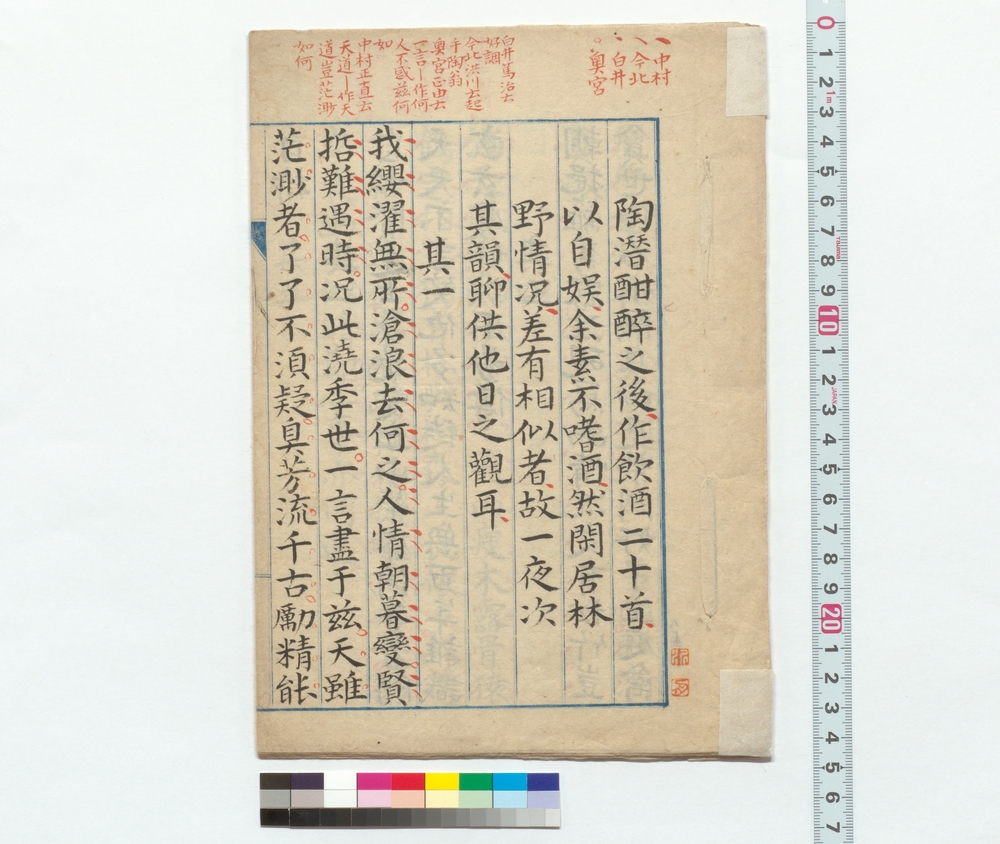 、中村
、今北
、白井
。奥宮
白井篤治云
好調
今北洪川云起
手陶翁
奥宮正由云
一言｜作何
人不感茲何
如
中村正直云
天道｜作天
道豈茫渺
如何
陶潛酣醉之後作飲酒二十首
以自娯余素不嗜酒然閑居林
野情況差有相似者故一夜次
其韻聊供他日之觀耳
其一
我纓濯無所滄浪去何之人情朝暮變賢
哲難遇時況此澆季世一言盡于茲天雖
茫渺者了了不須疑臭芳流千古勵精能
0 1 2 3 4 5 6 7 8 9 10 1 2 3 4 5 6 7 8 9 20 1 2 3 4 5 6 7
1m
JAPAN